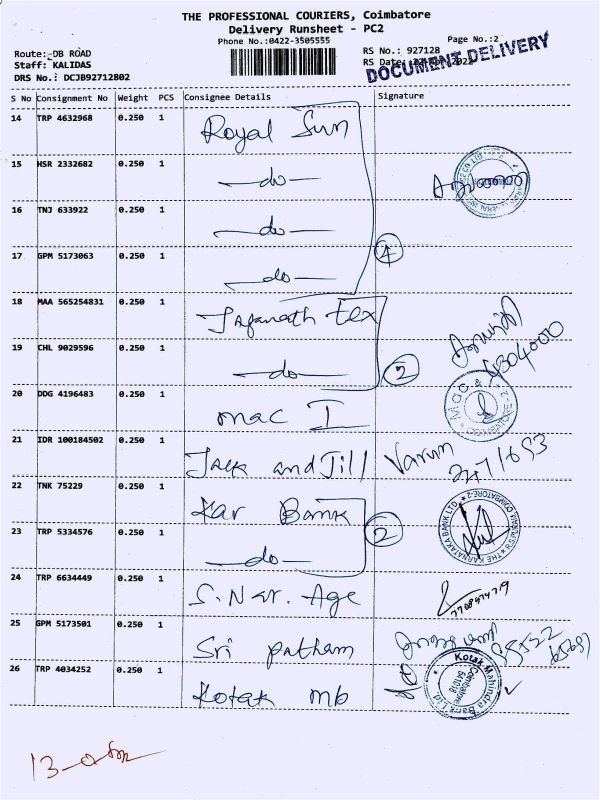 THE PROFESSIONAL COURIERS, Coimbatore
Delivery Runsheet - PC2
Phone No.:0422-3505555
Page No.:2
Route:-DB ROAD
RS No.: 927128
Staff: KALIDAS
RS Date:
DOCUMENT DELIVERY
DRS No.: DCJB92712802
S No Consignment No Weight PCS Consignee Details Signature
14 TRP 4632968 0.250 1 Royal Sun
15 HSR 2332682 0.250 1 —do—
16 TNJ 633922 0.250 1 —do—
17 GPM 5173063 0.250 1 —do— 4
18 MAA 565254831 0.250 1 Jaganath tex
19 CHL 9029596 0.250 1 —do— 2
20 DDG 4196483 0.250 1 mac I
21 IDR 100184502 0.250 1 Jack and Jill Varun
22 TNK 75229 0.250 1 Kar Bank 2
THE KARNATAKA BANK LTD.
23 TRP 5334576 0.250 1 —do—
24 TRP 6634449 0.250 1 S. Nar. Age
25 GPM 5173501 0.250 1 Sri patham
26 TRP 4034252 0.250 1 Kotak mb
Kotak Mahindra Bank Ltd.
Coimbatore
641018
13